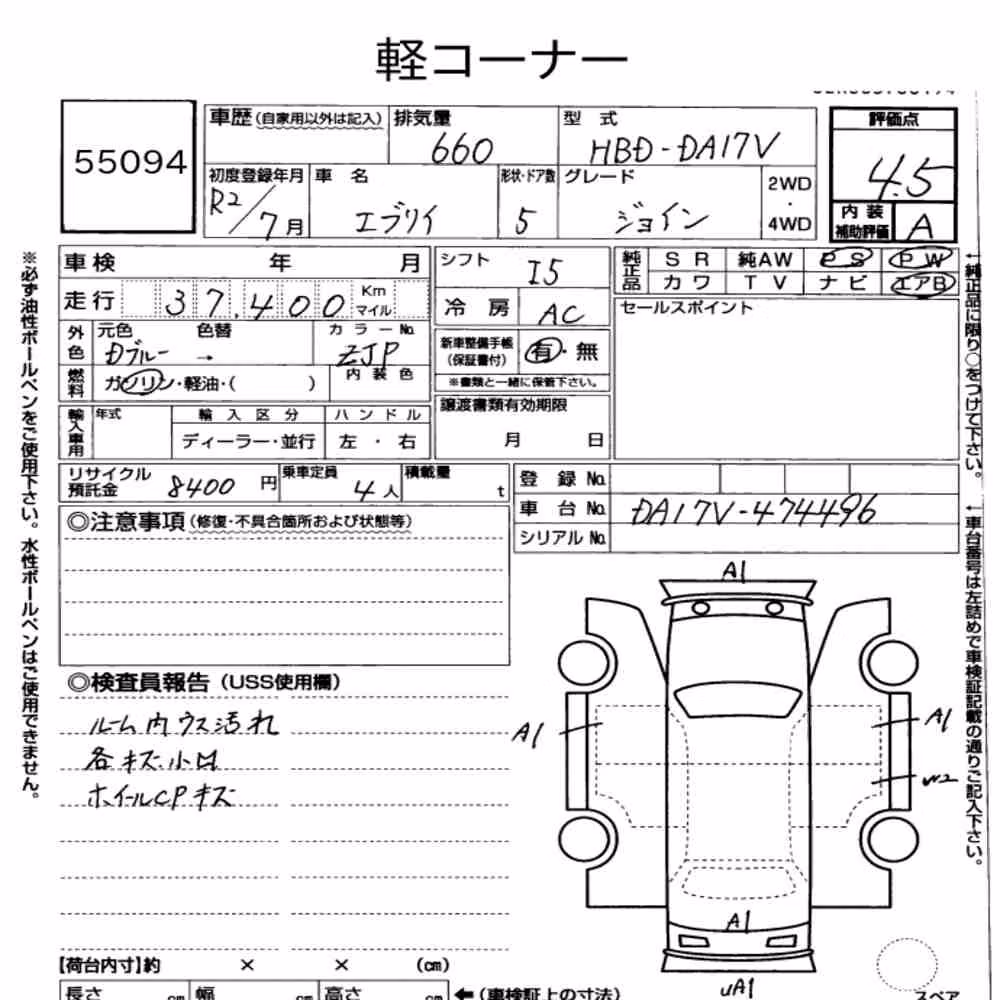 軽コーナー
55094
車歴(自家用以外は記入) 排気量 660 型式 HBD-DA17V
評価点 4.5
初度登録年月 R2/7月 車名 エブリイ 形状・ドア数 5 グレード ジョイン 2WD・4WD
内装補助評価 A
車検 年 月
シフト I5
純正品 SR 純AW PS PW
カワ TV ナビ エアB
走行 37,400 Km マイル
冷房 AC
セールスポイント
外色 元色 Dブルー 色替 → カラーNo. ZJP
新車整備手帳(保証書付) 有・無
※書類と一緒に保管下さい。
燃料 ガソリン・軽油・( ) 内装色
譲渡書類有効期限
月 日
輸入車用 年式 輸入区分 ハンドル
ディーラー・並行 左・右
リサイクル預託金 8400円 乗車定員 4人 積載量 t
登録No.
車台No. DA17V-474496
シリアルNo.
◎注意事項(修復・不具合箇所および状態等)
◎検査員報告(USS使用欄)
ルーム内ウス汚れ
各キズ小凹
ホイールCPキズ
A1
A1
A1
A1
uA1
スペア
【荷台内寸】約 × × (cm)
長さ cm 幅 cm 高さ cm ←(車検証上の寸法)
※必ず油性ボールペンをご使用下さい。水性ボールペンはご使用できません。
←純正品に限り○をつけて下さい。
←車台番号は左詰めで車検証記載の通りご記入下さい。